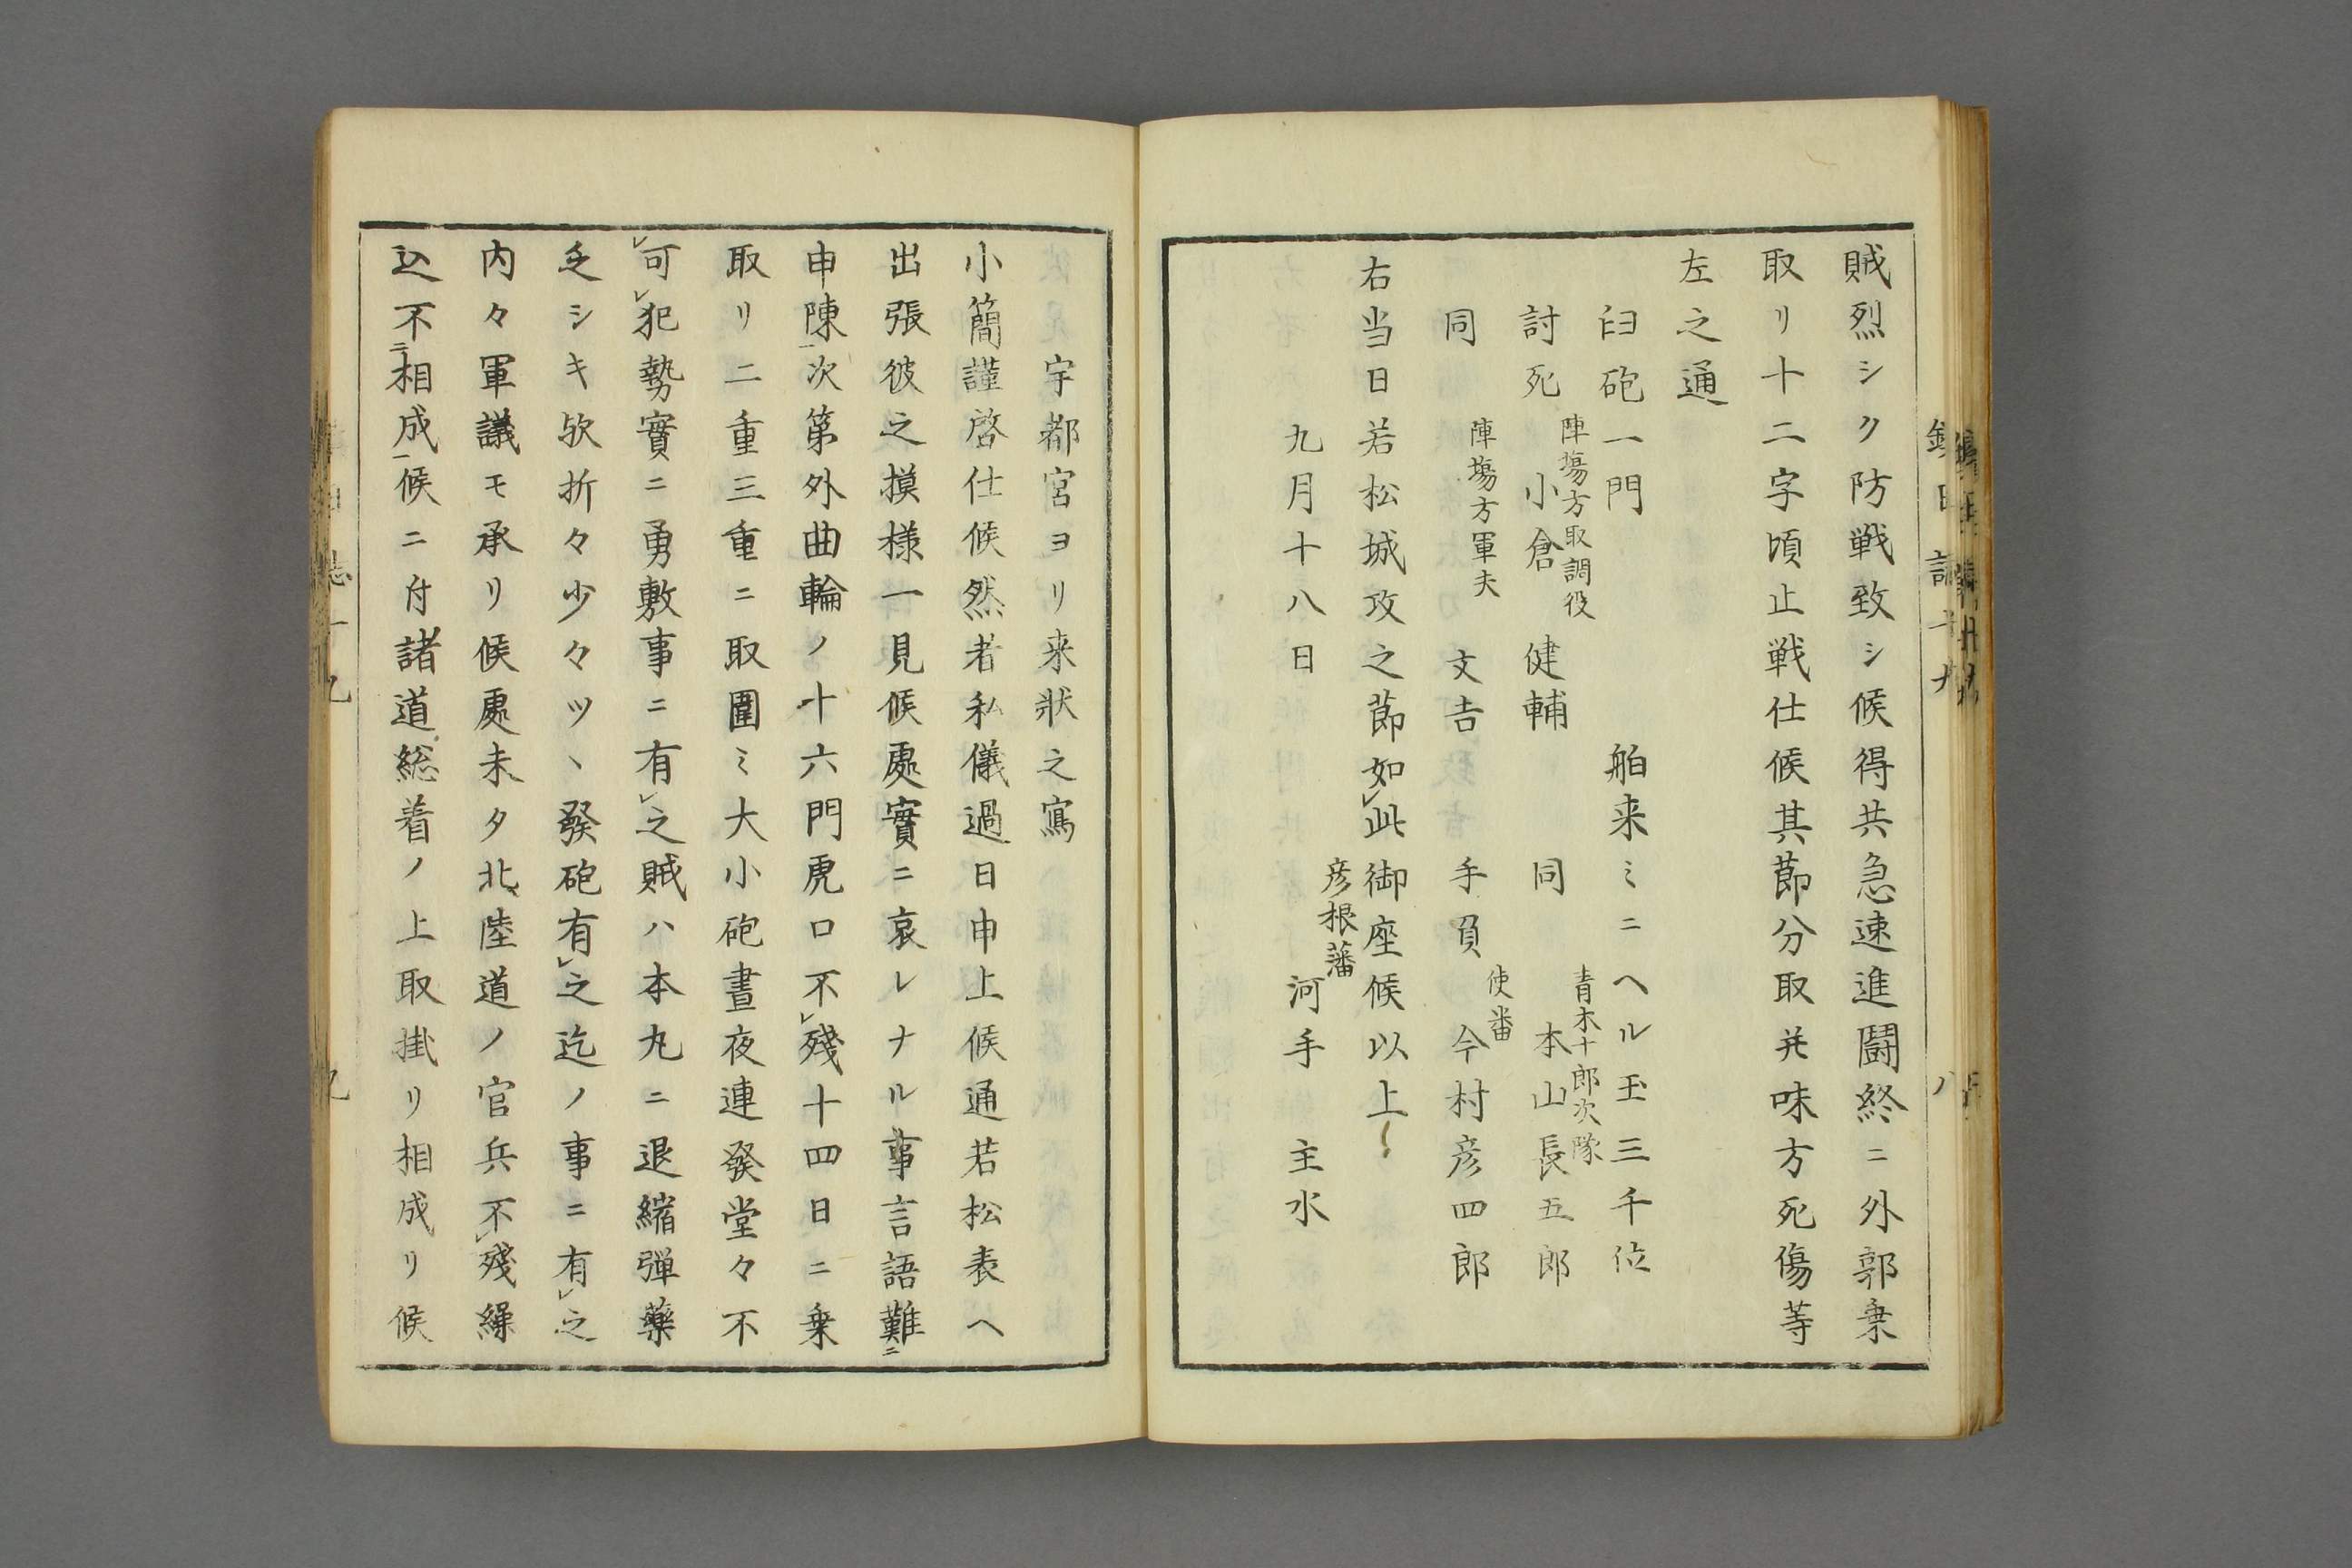 賊烈シク防戦致シ候得共急速進闘終ニ外郭乗
取リ十二字頃止戦仕候其節分取幷味方死傷等
左之通
臼砲一門　舶来ミニヘル玉三千位
討死　陣塲方取調役　小倉健輔　同　青木十郎次隊　本山長五郎
同　陣塲方軍夫　文吉　手負　使番　今村彦四郎
右当日若松城攻之節如レ此御座候以上
九月十八日　彦根藩　河手主水
宇都宮ヨリ来狀之寫
小簡謹啓仕候然者私儀過日申上候通若松表ヘ
出張彼之摸様一見候處實ニ哀レナル事言語難ニ
申陳一次第外曲輪ノ十六門虎口不レ殘十四日ニ乗
取リ二重三重ニ取圍ミ大小砲晝夜連發堂々不
レ可レ犯勢實ニ勇敷事ニ有レ之賊ハ本丸ニ退縮弾藥
乏シキ欤折々少々ツヽ發砲有レ之迄ノ事ニ有レ之
内々軍議モ承リ候處未タ北陸道ノ官兵不レ殘繰
込不ニ相成一候ニ付諸道総着ノ上取掛リ相成リ候